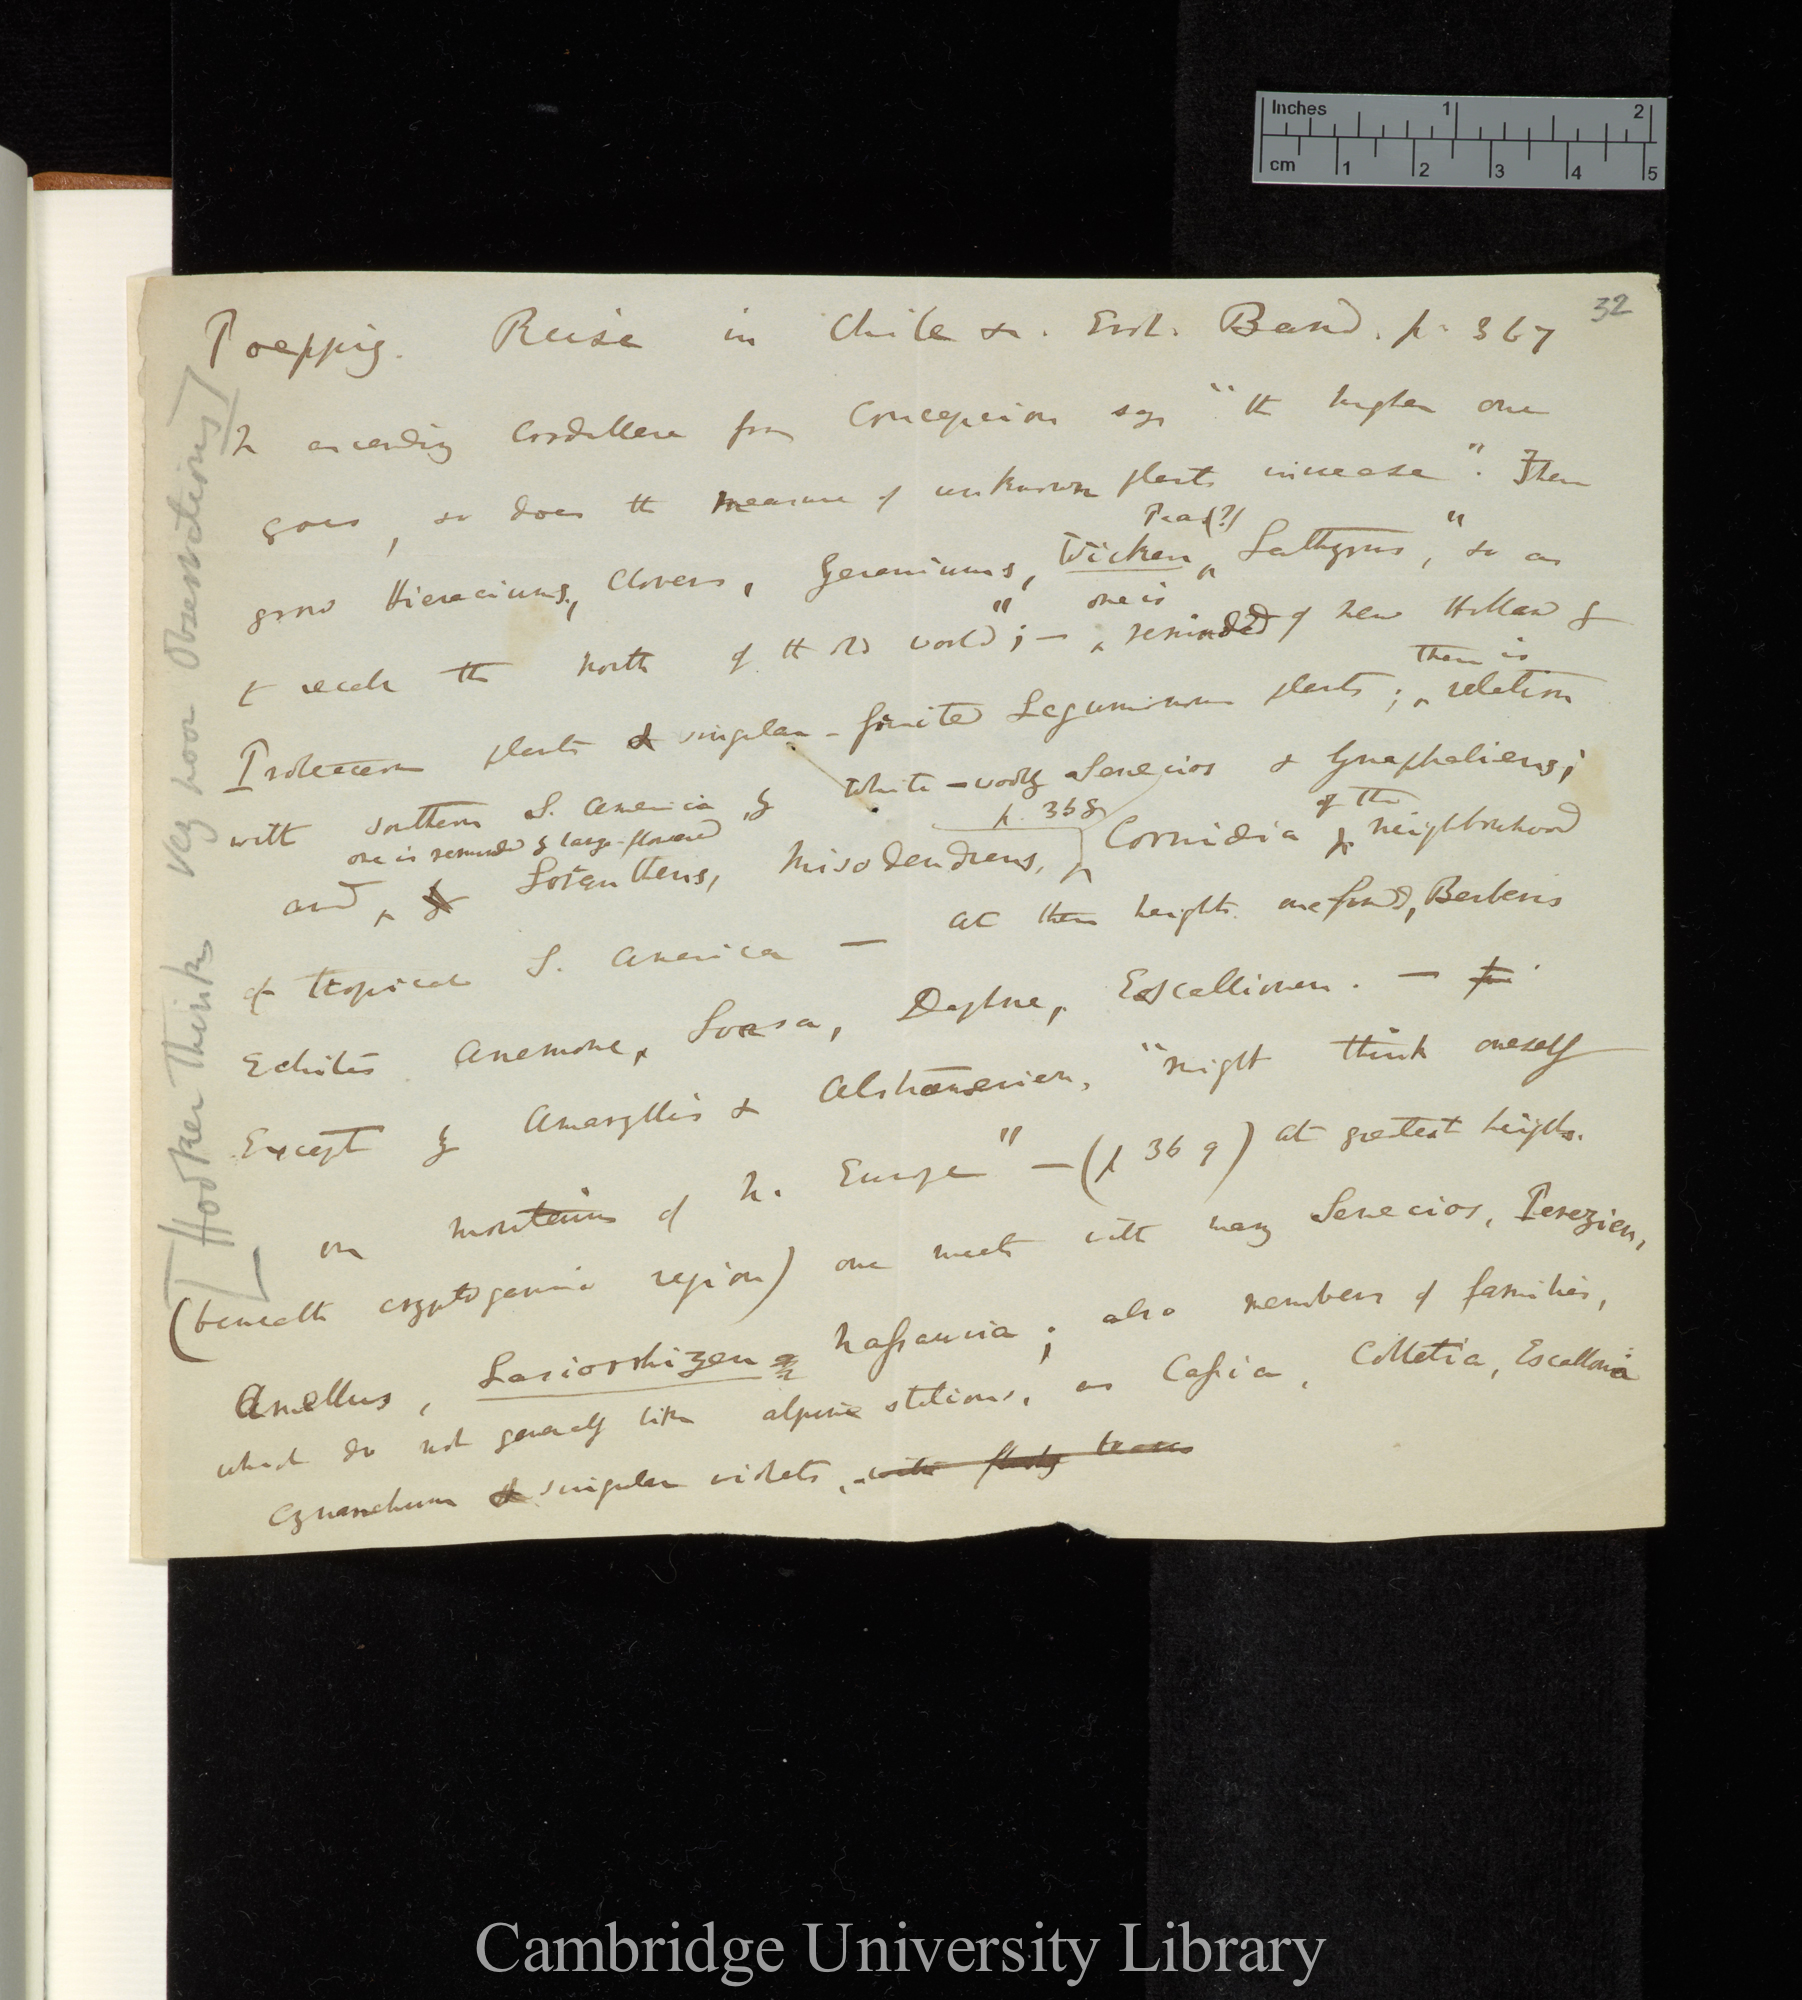 32
Poeppig. Reise in Chile &. Erst. Band. p. 367
In ascending Cordillera from Concepcion says "the higher one
goes, so does the measure of unknown plants increase". There
Peas(?)
grow Hieraciums, Clovers, Geraniums, Wicken, Lathyrus," so as
one is
to recall the north of the old world"; — reminded of New Holland by
there is
Proteaceous plants & singular-fruited Leguminous plants; relation
with southern S. America by white-woolly Senecios & Gnaphaliens;
one is reminded by large-flowered
p. 368
of the
and by Loranthens, Misodendrens, Cornidia neighbourhood
of tropical S. America — at these heights one finds, Berberis
Echites Anemone, Loasa, Daphne, Escallionen. —
Except by Amaryllis & Alstrœmerien, "might think oneself
on mountains of N. Europe" — (p 369) at greatest heights.
(beneath cryptogamic region) one meets with many Senecios, Perezien,
Amellus, Lasiorrhizen & Nassauvia; also members of families,
which do not generally like alpine stations, as Cassia, Colletia, Escallonia
Cynanchum & singular violets, with fleshy leaves
[Hooker thinks very poor observations]
Inches 1 2
cm 1 2 3 4 5
Cambridge University Library